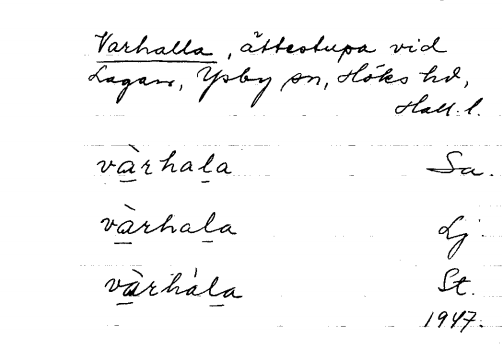 Varhalla, ättestupa vid
Lagan, Ysby sn, Höks hd,
Hall. l.
vàrhala Sa.
vàrhala Lj.
vàrhála St.
1947.